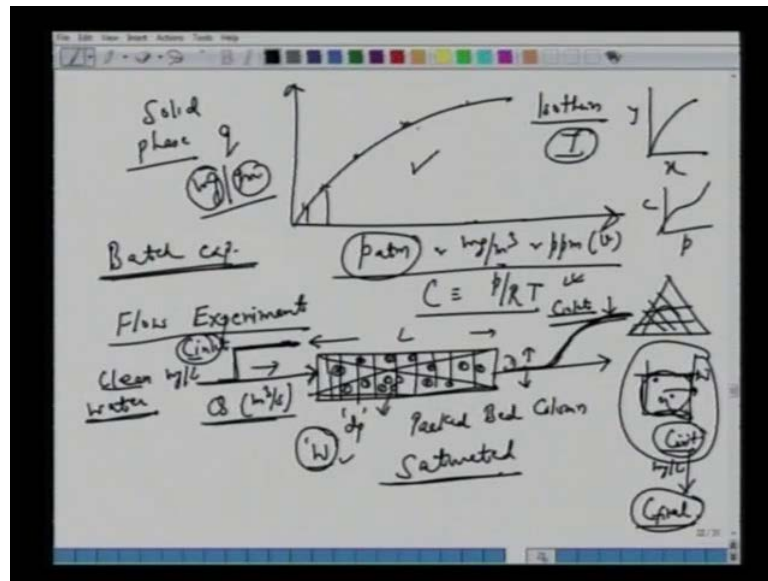 File Edit View Insert Actions Tools Help
Solid
phase q
mg/gm
Isotherm
I
y
x
C
p
Batch exp.
p atm ~ mg/m³ ~ ppm (v)
C ≡ p/RT
Flow Experiment
L
Cinlet
Clean mg/L
water
Q (m³/s)
'dp'
'W'
Packed Bed Column
Saturated
W
Cinit
mg/L
Cfinal
22/31